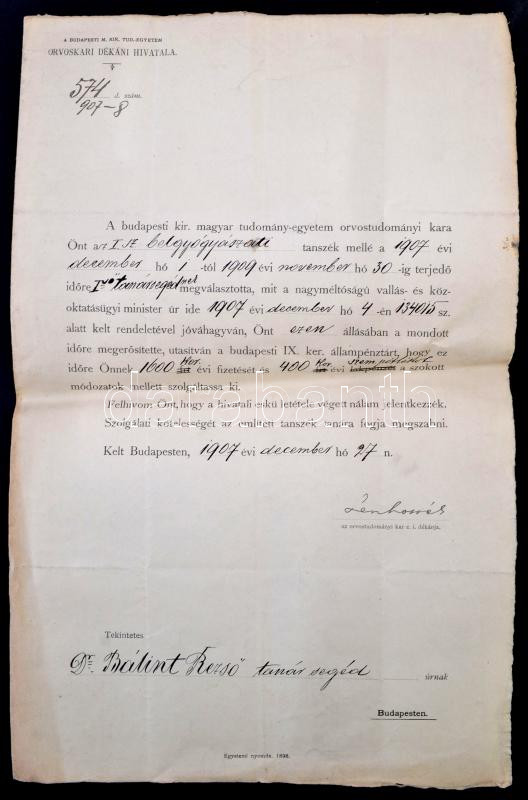 A BUDAPESTI M. KIR. TUD.-EGYETEM
ORVOSKARI DÉKÁNI HIVATALA.
574 d. szám.
907-8
A budapesti kir. magyar tudomány-egyetem orvostudományi kara
Önt a/z I. sz. belgyógyászati tanszék mellé a 1907 évi
december hó 1-től 1909 évi november hó 30-ig terjedő
időre I-ső tanársegédnek megválasztotta, mit a nagyméltóságú vallás- és köz-
oktatásügyi minister úr ide 1907 évi december hó 4-én 134015 sz.
alatt kelt rendeletével jóváhagyván, Önt ezen állásában a mondott
időre megerősítette, utasítván a budapesti IX. ker. állampénztárt, hogy ez
időre Önnek 1600 Kor. évi fizetését és 400 Kor. évi személyi pótlékát a szokott
módozatok mellett szolgáltassa ki.
Felhívom Önt, hogy a hivatali eskü letétele végett nálam jelentkezzék.
Szolgálati kötelességét az említett tanszék tanára fogja megszabni.
Kelt Budapesten, 1907 évi december hó 27 n.
az orvostudományi kar e. i. dékánja.
Tekintetes
Dr. Bálint Rezső tanársegéd úrnak
Budapesten.
Egyetemi nyomda. 1898.
darabanth